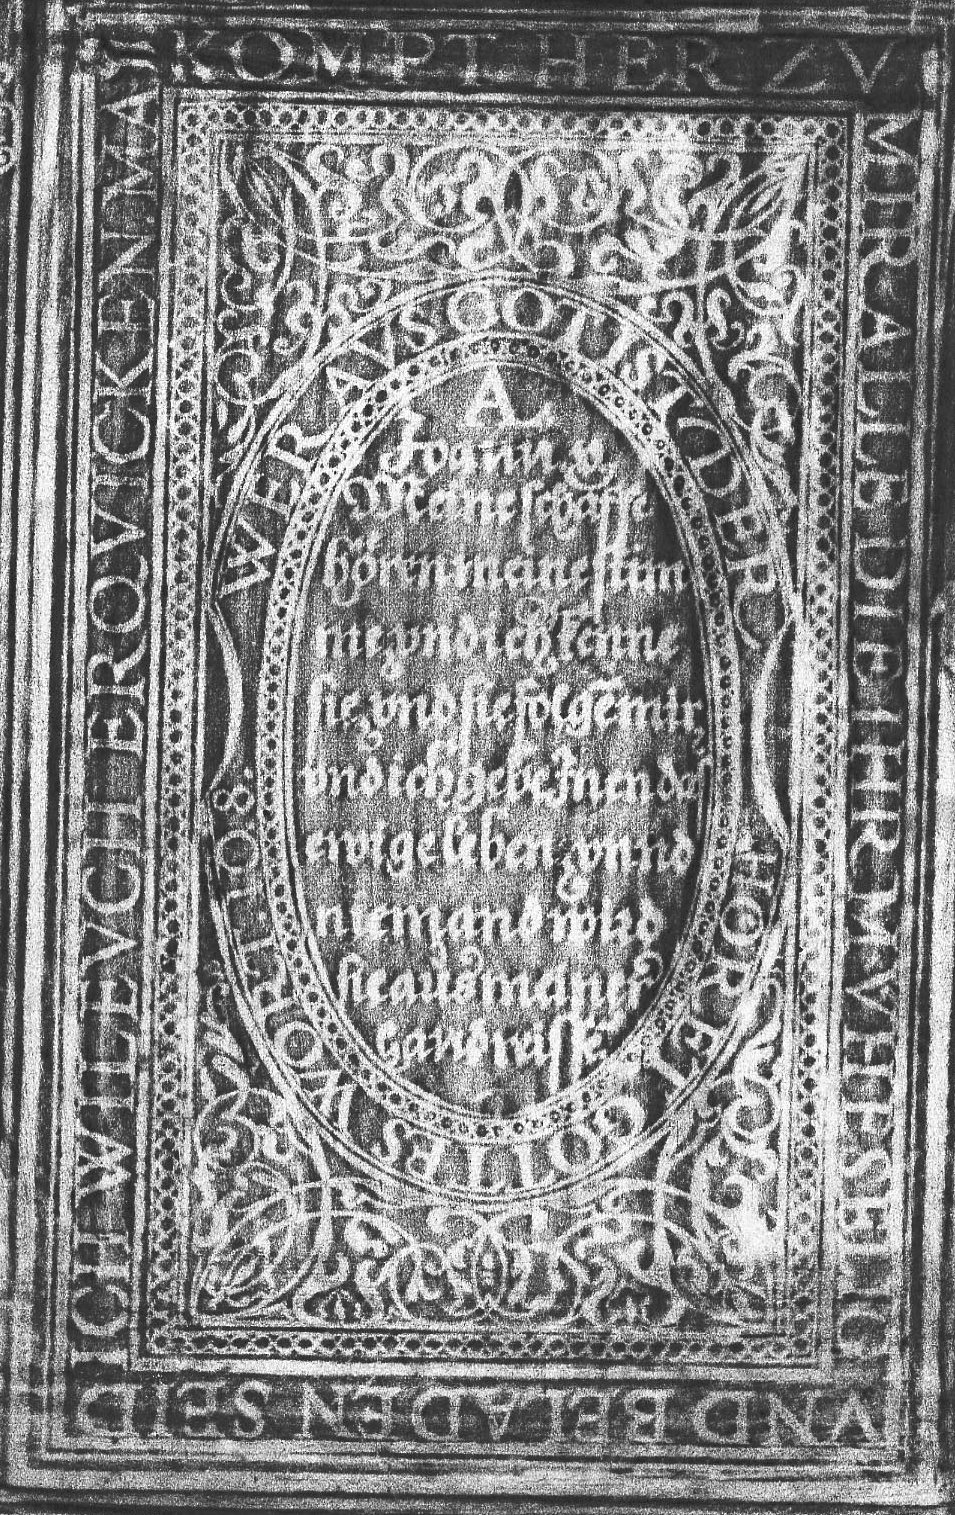 KOMPT HER ZV
MIR ALLE DIE IHR MVHESELIG
VND BELADEN SEID
ICH WIL EVCH ERQVICKEN. MA
WER AVS GOTT IST DER
HORET GOTTES WORT. IOH: 8:
A
Ioann. X.
Meine schaffe
hören meine stim
me, vnd ich kenne
sie, vnd sie folgē mir,
vnd ich gebe ihnen das
ewige leben, vnnd
niemand wird
sie aus meiner
hand reissē.